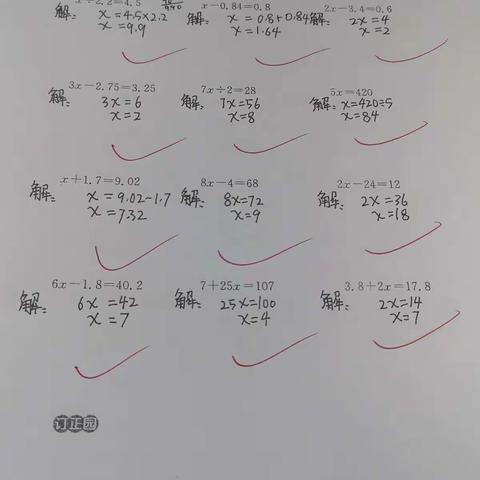 x÷2.2=4.5 x−0.84=0.8 2x−3.4=0.6
解: x=4.5×2.2 解: x=0.8+0.84 解: 2x=4
x=9.9 x=1.64 x=2
3x−2.75=3.25 7x÷2=28 5x=420
解: 3x=6 解: 7x=56 解: x=420÷5
x=2 x=8 x=84
x+1.7=9.02 8x−4=68 2x−24=12
解: x=9.02-1.7 解: 8x=72 解: 2x=36
x=7.32 x=9 x=18
6x−1.8=40.2 7+25x=107 3.8+2x=17.8
解: 6x=42 解: 25x=100 解: 2x=14
x=7 x=4 x=7
订正园